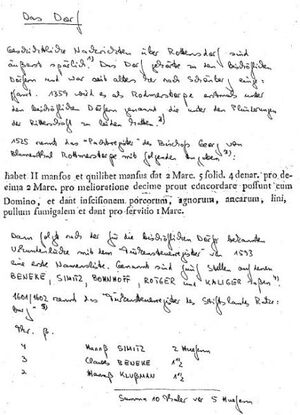 Das Dorf
Geschichtliche Nachrichten über Rottensdorf sind
äusserst spärlich.¹) Das Dorf gehörte zu den bischöflichen
Dörfern und war seit altes her nach Schönberg einge-
pfarrt. 1359 wird es als Rohmersberge erstmals unter
den bischöflichen Dörfern genannt die unter den Plünderungen
der Ritterschaft zu leiden hatten.²)
1525 nennt das "Pachtregister" des Bischofs Georg von
Blumenthal Rottmersberge mit folgenden Angaben³):
habet II mansos et quilibet mansus dat 2 Marc. 5 solid. 4 denar. pro de-
cima 2 Marc. pro melioratione decime prout concordare possunt cum
Domino, et dant inscisionem porcorum, agnorum, ancarum, lini,
pullum fumigalem et dant pro servitio 1 Marc.
Dann folgt nach der für die bischöflichen Dörfer bekannten
Urkundenlücke mit dem "Türkensteuerregister" von 1593
eine erste Namensliste. Genannt sind fünf Stellen auf denen
BENEKE, SIMITZ, BONHOFF, ROTGER und KALIGER saßen⁴)
1601/1602 nennt das Türkensteuerregister des Stiftslandes Ratze-
burg⁵)
Thr. ß.
4 Hanß SIMITZ 2 Huefen
3 Claues BENEKE 1½
2 Hanß KLUßMAN 1½
Summa 10 Thaler vor 5 Huefen